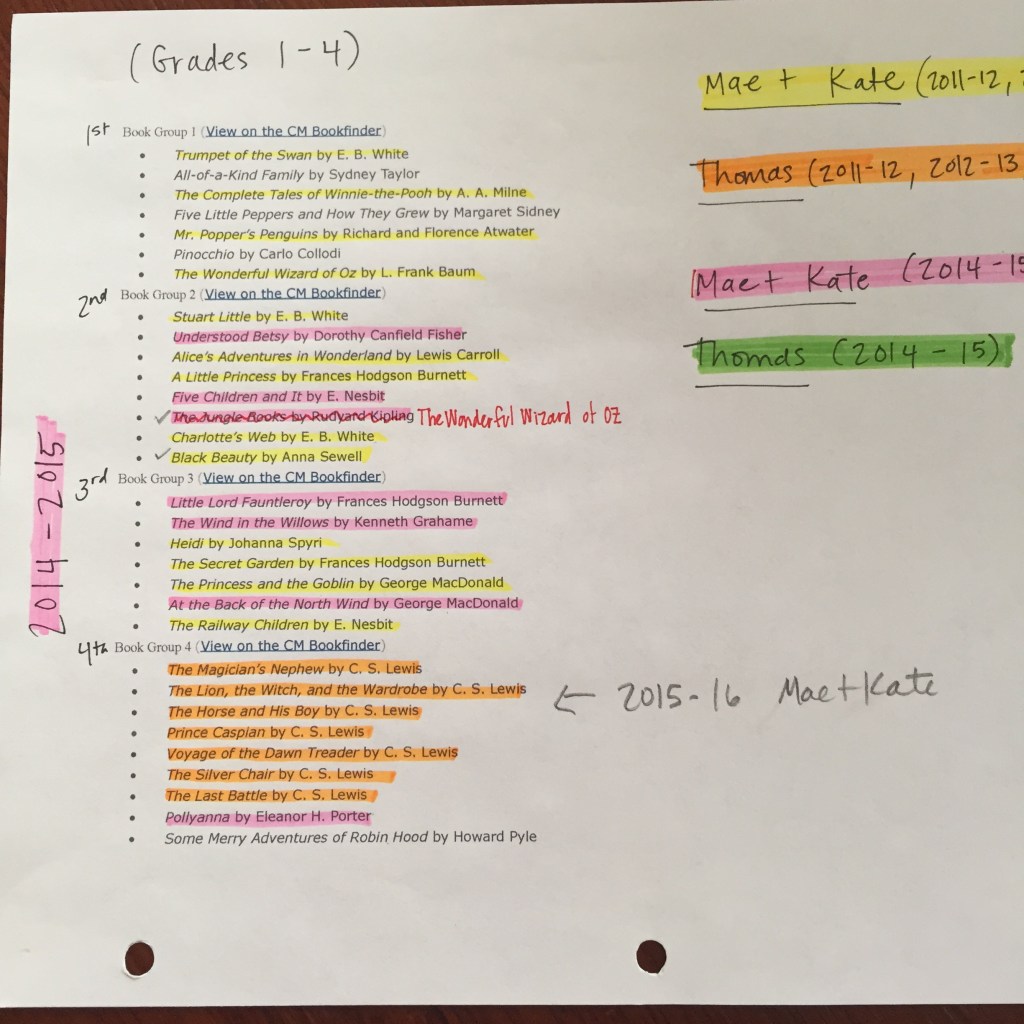 (Grades 1-4)
Mae + Kate (2011-12,
Thomas (2011-12, 2012-13
Mae + Kate (2014-15
Thomas (2014-15)
2014-2015
1st Book Group 1 (View on the CM Bookfinder)
Trumpet of the Swan by E. B. White
All-of-a-Kind Family by Sydney Taylor
The Complete Tales of Winnie-the-Pooh by A. A. Milne
Five Little Peppers and How They Grew by Margaret Sidney
Mr. Popper's Penguins by Richard and Florence Atwater
Pinocchio by Carlo Collodi
The Wonderful Wizard of Oz by L. Frank Baum
2nd Book Group 2 (View on the CM Bookfinder)
Stuart Little by E. B. White
Understood Betsy by Dorothy Canfield Fisher
Alice's Adventures in Wonderland by Lewis Carroll
A Little Princess by Frances Hodgson Burnett
Five Children and It by E. Nesbit
The Jungle Books by Rudyard Kipling The Wonderful Wizard of Oz
Charlotte's Web by E. B. White
Black Beauty by Anna Sewell
3rd Book Group 3 (View on the CM Bookfinder)
Little Lord Fauntleroy by Frances Hodgson Burnett
The Wind in the Willows by Kenneth Grahame
Heidi by Johanna Spyri
The Secret Garden by Frances Hodgson Burnett
The Princess and the Goblin by George MacDonald
At the Back of the North Wind by George MacDonald
The Railway Children by E. Nesbit
4th Book Group 4 (View on the CM Bookfinder)
The Magician's Nephew by C. S. Lewis
The Lion, the Witch, and the Wardrobe by C. S. Lewis ← 2015-16 Mae+Kate
The Horse and His Boy by C. S. Lewis
Prince Caspian by C. S. Lewis
Voyage of the Dawn Treader by C. S. Lewis
The Silver Chair by C. S. Lewis
The Last Battle by C. S. Lewis
Pollyanna by Eleanor H. Porter
Some Merry Adventures of Robin Hood by Howard Pyle